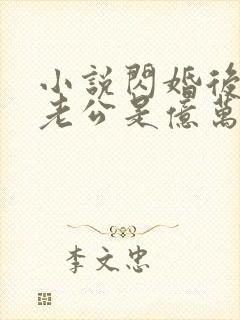 小說閃婚後
老公是億萬
李文忠